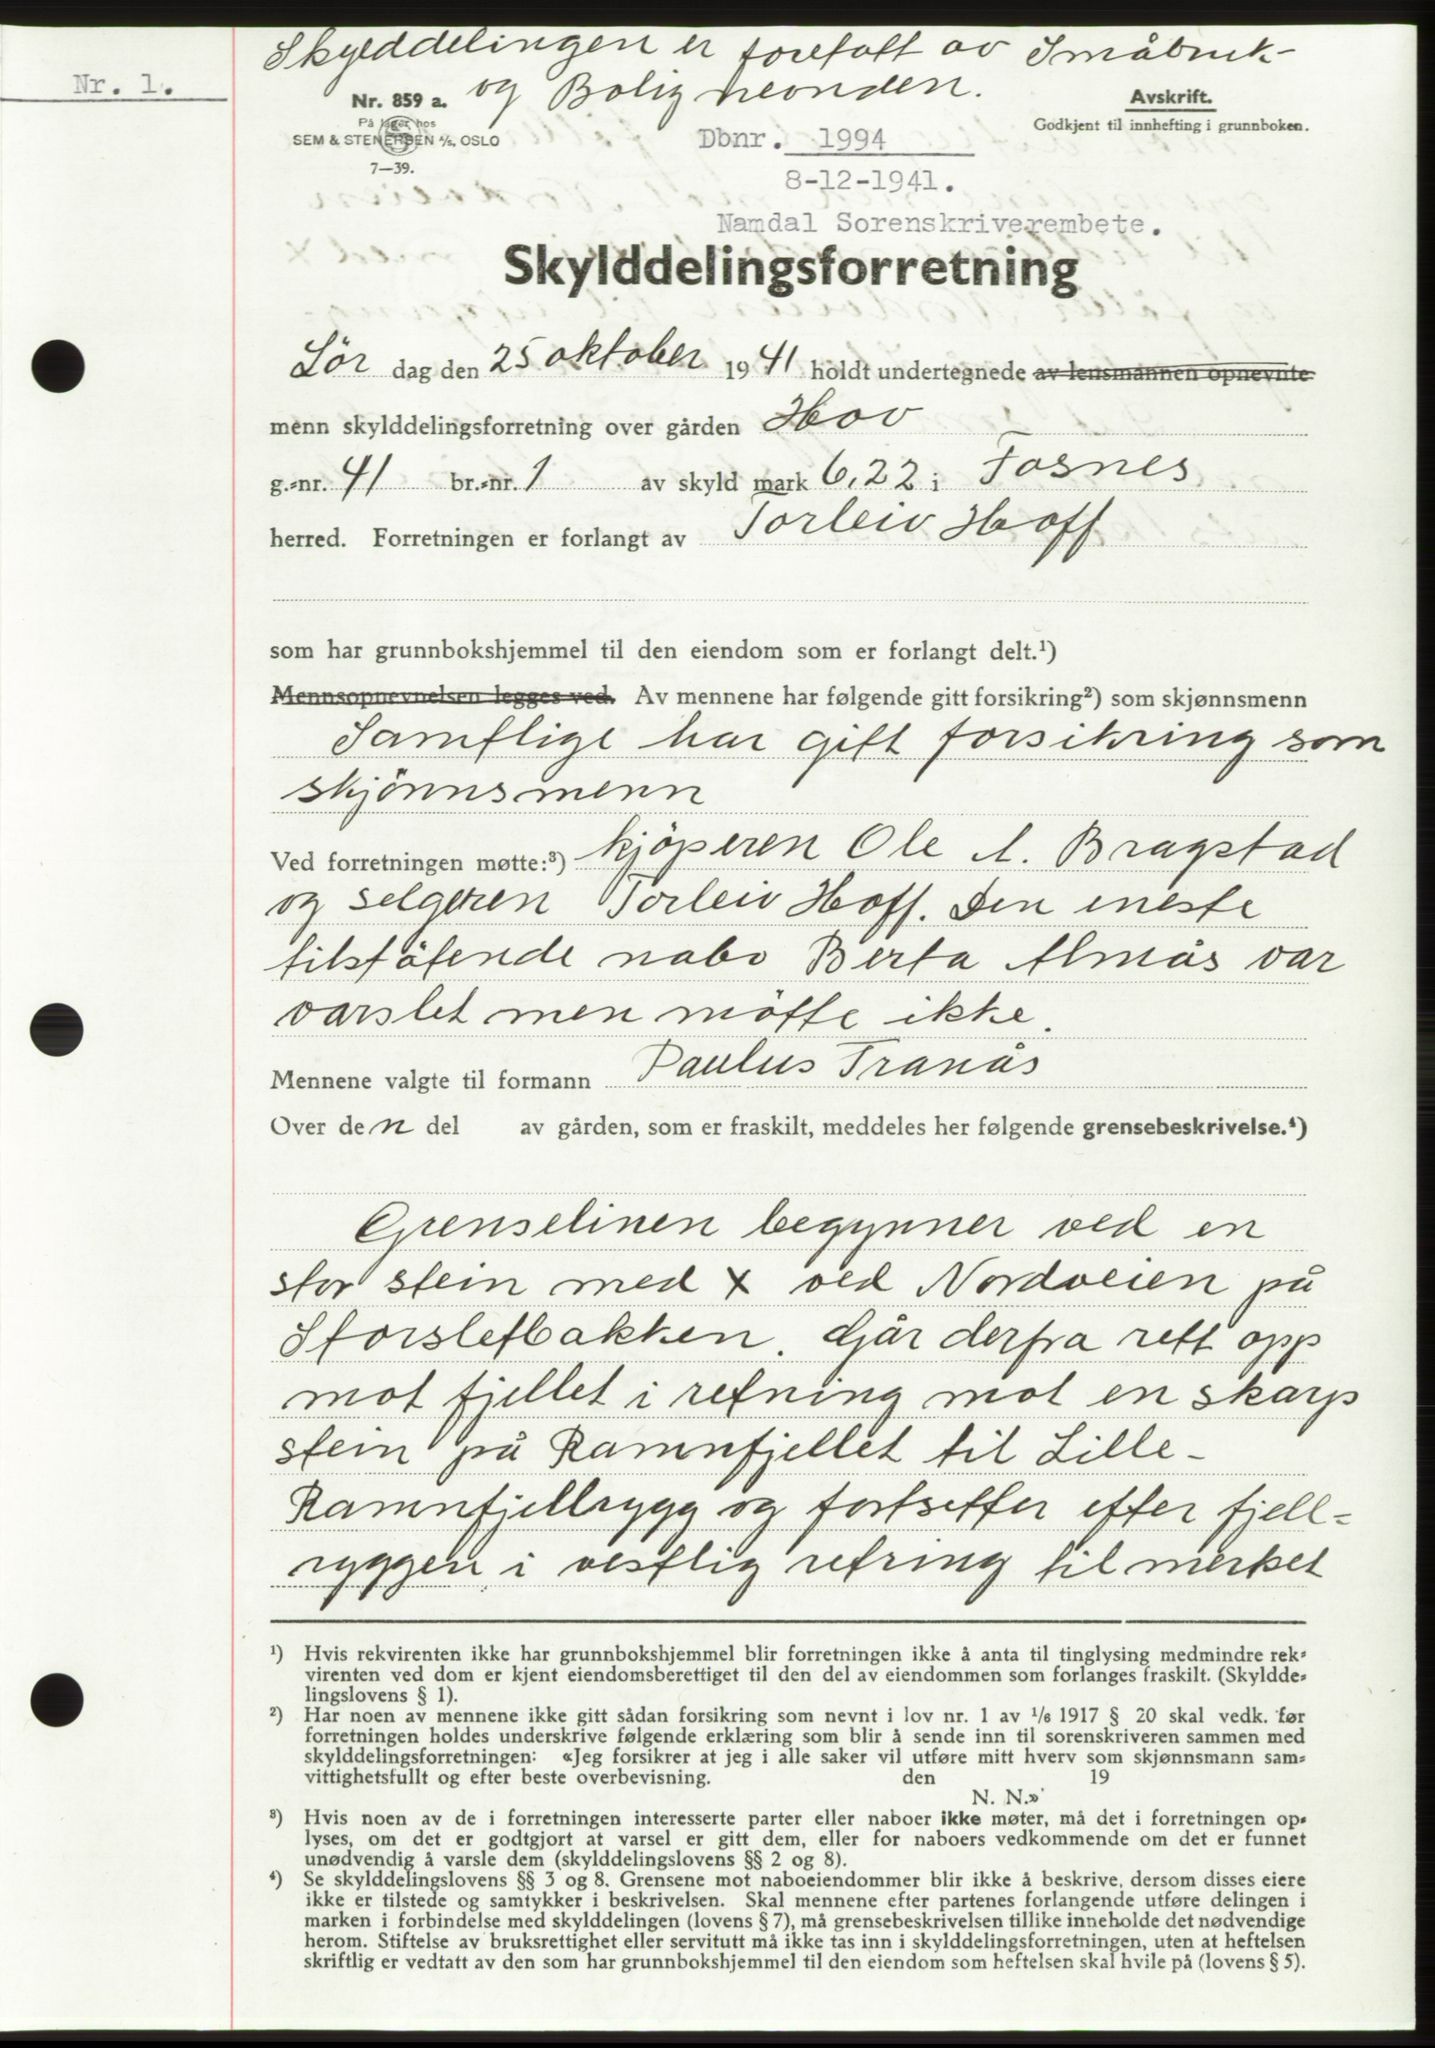 Skylddelingen er foretatt av Småbruk-
og Bolignevnden.
Nr. 1.
Nr. 859 a.
På lager hos
SEM & STENERSEN A/S, OSLO
7—39.
Avskrift.
Godkjent til innhefting i grunnboken.
Dbnr. 1994
8-12-1941.
Namdal Sorenskriverembete.
Skylddelingsforretning
Lör dag den 25 oktober 1941 holdt undertegnede av lensmannen opnevnte
menn skylddelingsforretning over gården Hov
g.-nr. 41 br.-nr. 1 av skyld mark 6,22 i Fosnes
herred. Forretningen er forlangt av Torleiv Hoff
som har grunnbokshjemmel til den eiendom som er forlangt delt.¹)
Mennsopnevnelsen legges ved. Av mennene har følgende gitt forsikring²) som skjønnsmenn
Samtlige har gitt forsikring som
skjönnsmenn
Ved forretningen møtte:³) kjöperen Ole A. Bragstad
og selgeren Torleiv Hoff. Den eneste
tilstötende nabo Berta Almås var
varslet men mötte ikke.
Mennene valgte til formann Paulus Tranås
Over den del av gården, som er fraskilt, meddeles her følgende grensebeskrivelse.⁴)
Grenselinen begynner ved en
stor stein med x ved Nordveien på
Storsletbakken. Går derfra rett opp
mot fjellet i retning mot en skarp
stein på Ramnfjellet til Lille-
Ramnfjellrygg og fortsetter efter fjell-
ryggen i vestlig retning til merket
¹) Hvis rekvirenten ikke har grunnbokshjemmel blir forretningen ikke å anta til tinglysing medmindre rek-
virenten ved dom er kjent eiendomsberettiget til den del av eiendommen som forlanges fraskilt. (Skyldde-
lingslovens § 1).
²) Har noen av mennene ikke gitt sådan forsikring som nevnt i lov nr. 1 av 1/6 1917 § 20 skal vedk. før
forretningen holdes underskrive følgende erklæring som blir å sende inn til sorenskriveren sammen med
skylddelingsforretningen: «Jeg forsikrer at jeg i alle saker vil utføre mitt hverv som skjønnsmann sam-
vittighetsfullt og efter beste overbevisning. den 19
N. N.»
³) Hvis noen av de i forretningen interesserte parter eller naboer ikke møter, må det i forretningen op-
lyses, om det er godtgjort at varsel er gitt dem, eller for naboers vedkommende om det er funnet
unødvendig å varsle dem (skylddelingslovens §§ 2 og 8).
⁴) Se skylddelingslovens §§ 3 og 8. Grensene mot naboeiendommer blir ikke å beskrive, dersom disses eiere
ikke er tilstede og samtykker i beskrivelsen. Skal mennene efter partenes forlangende utføre delingen i
marken i forbindelse med skylddelingen (lovens § 7), må grensebeskrivelsen tillike inneholde det nødvendige
herom. Stiftelse av bruksrettighet eller servitutt må ikke tas inn i skylddelingsforretningen, uten at heftelsen
skriftlig er vedtatt av den som har grunnbokshjemmel til den eiendom som heftelsen skal hvile på (lovens § 5).